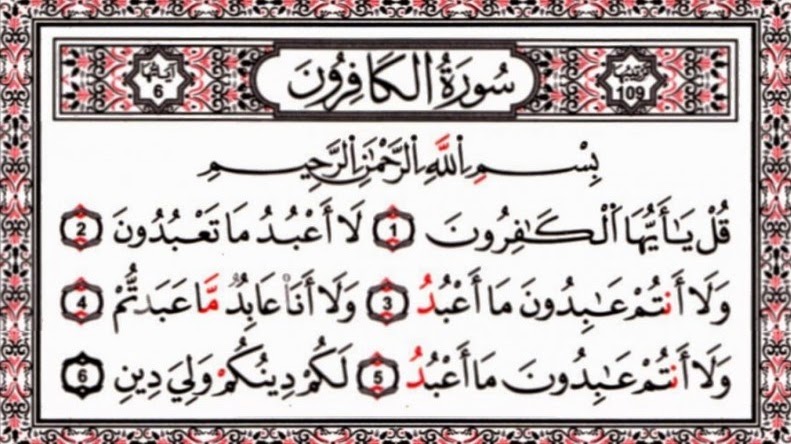 ترتيبها 109 سُورَةُ الكَافِرُونَ آياتها 6
بِسْمِ اِ۬للَّهِ اِ۬لرَّحْمَٰنِ اِ۬لرَّحِيمِ
قُلْ يَٰأَيُّهَا اَ۬لْكَٰفِرُونَ 1 لَا أَعْبُدُ مَا تَعْبُدُونَ 2
وَلَا أَنتُمْ عَٰبِدُونَ مَا أَعْبُدُ 3 وَلَا أَنَا۠ عَابِدٌ مَّا عَبَدتُّمْ 4
وَلَا أَنتُمْ عَٰبِدُونَ مَا أَعْبُدُ 5 لَكُمْ دِينُكُمْ وَلِيَ دِينِ 6